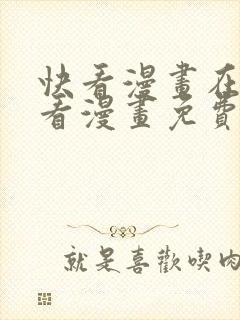 快看漫畫在
看漫畫免費
就是喜歡喫肉